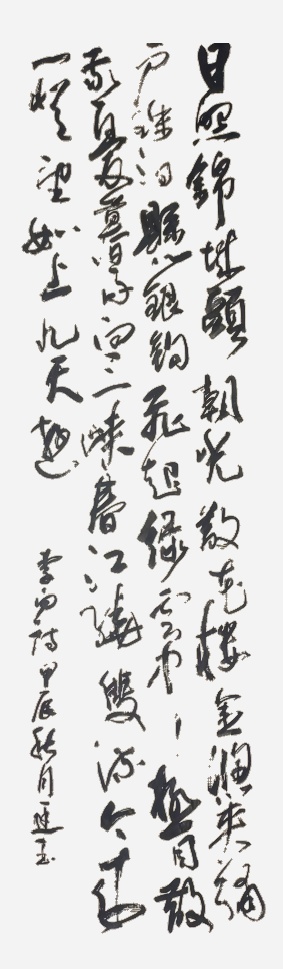 日照錦城頭朝光散花樓金窗夾繡
戶珠泊懸銀鉤飛起綠雲中極目散
我憂暮雨向三峽春江繞雙流今來
一登望如上九天遊
李白詩甲辰秋月